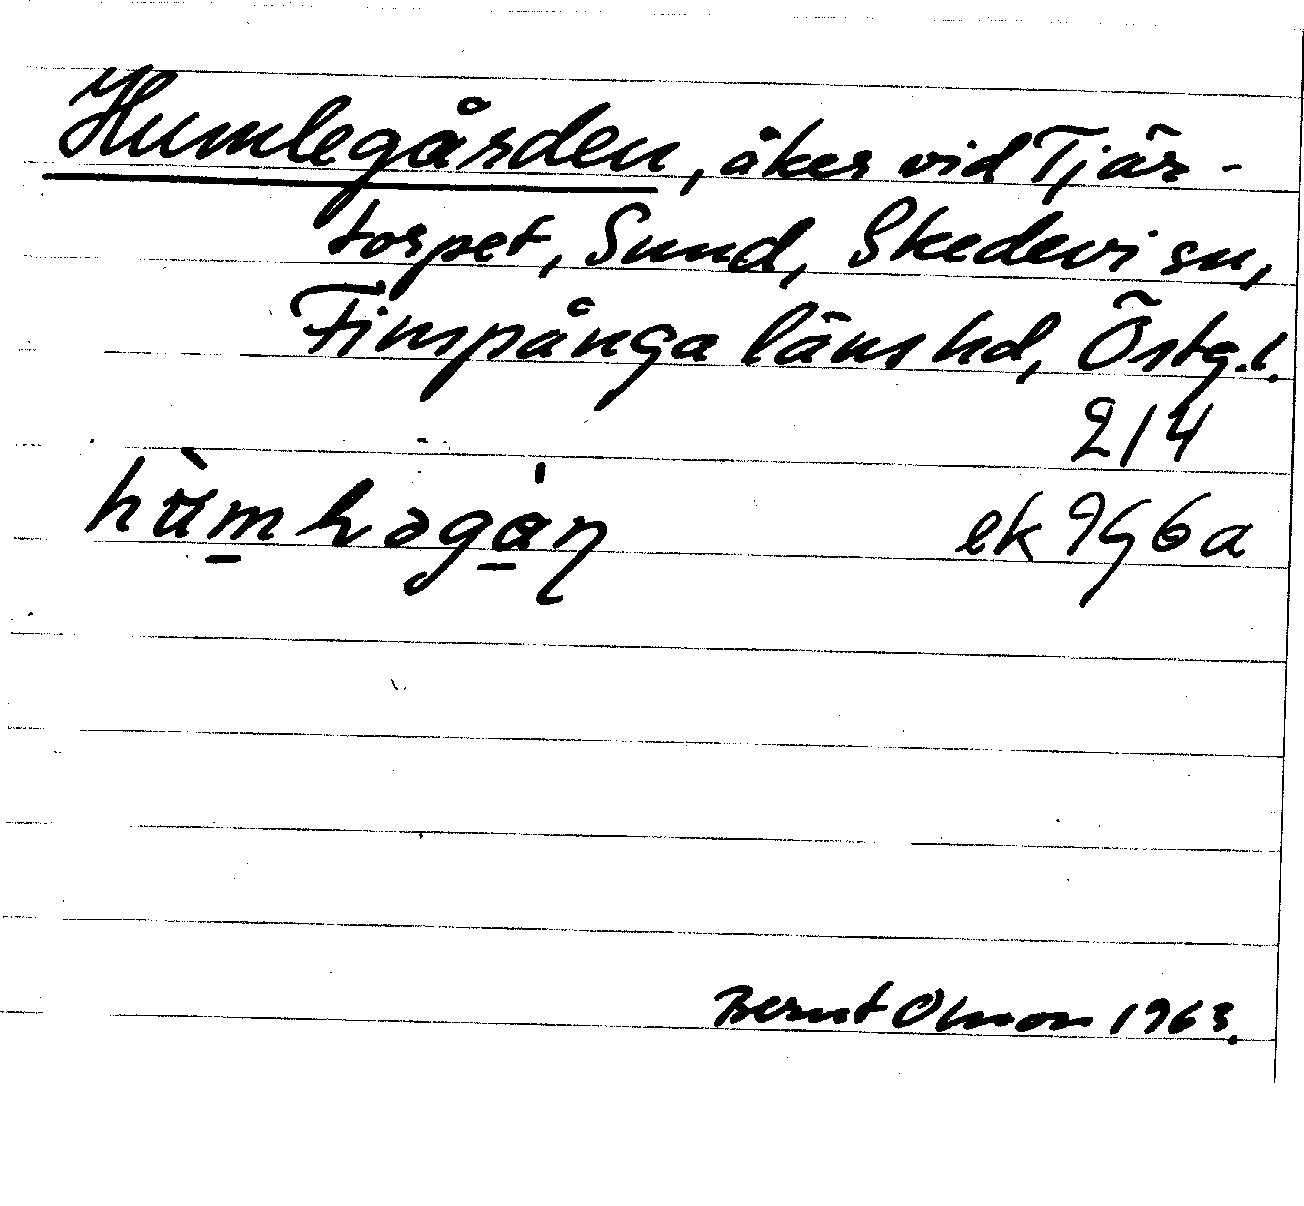 Humlegården, åker vid Tjär-
torpet, Sund, Skedevi sn,
Finspånga läns hd, Östg.l.
214
ek 9G6a
Bernt Olsson 1963.